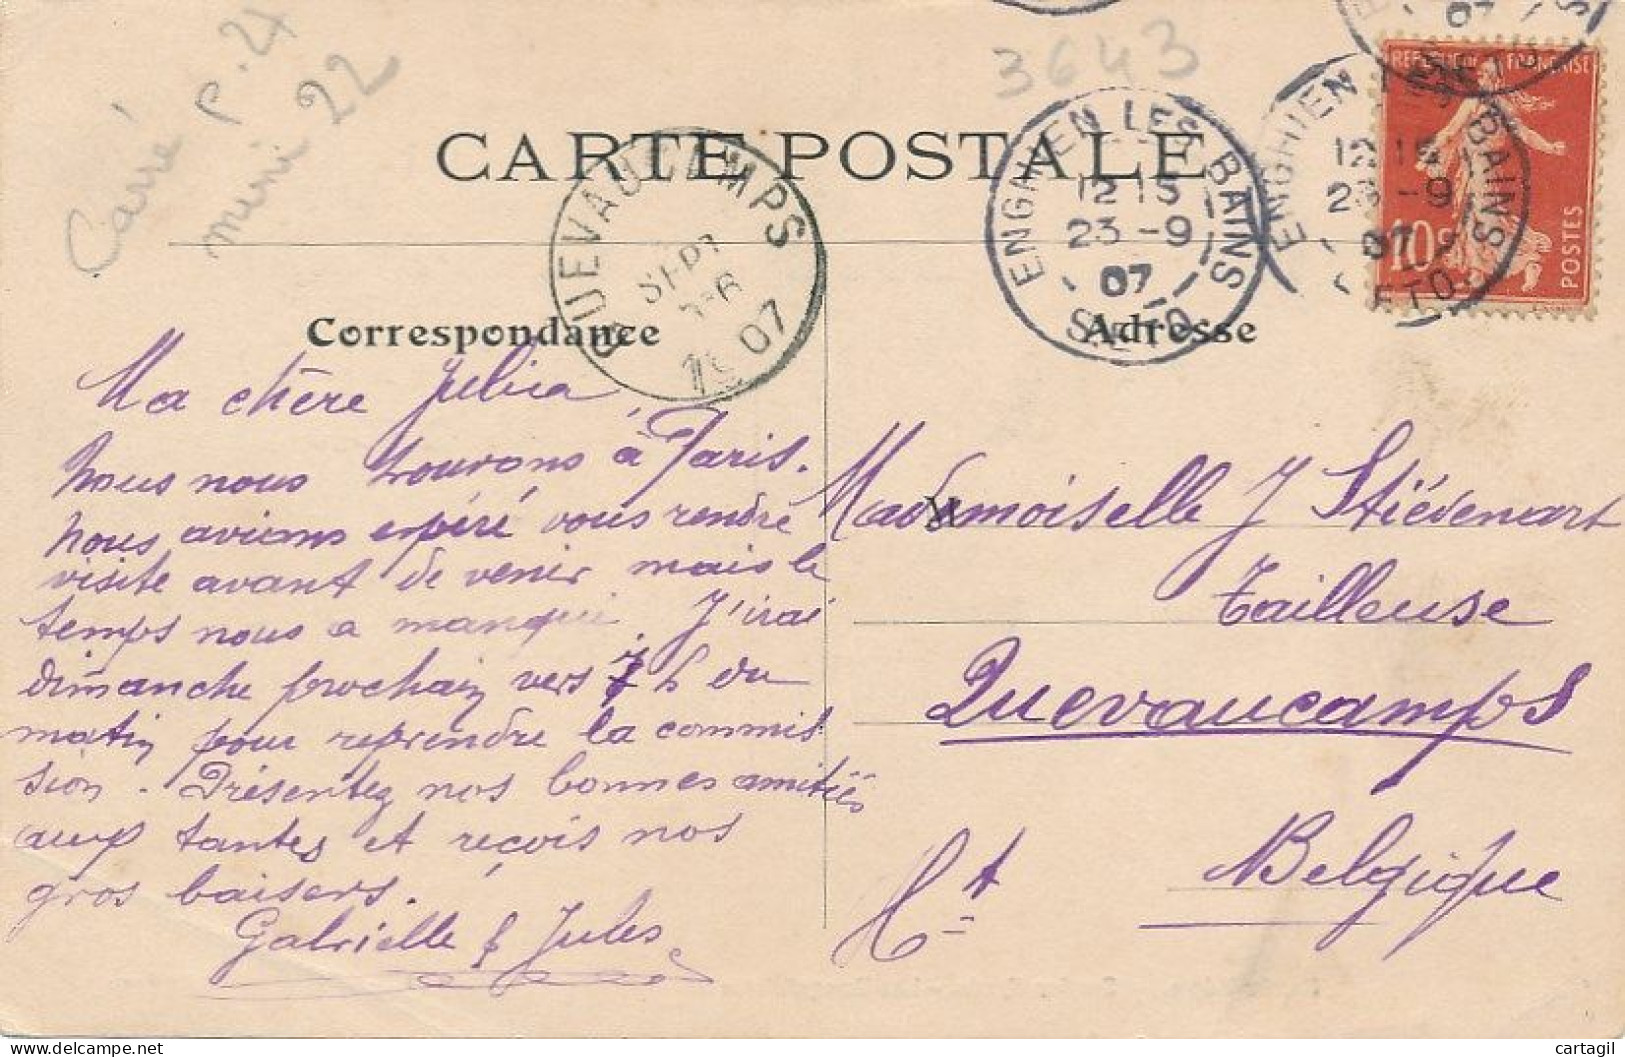 Carré p.27
mini 22
3643
CARTE POSTALE
QUEVAUCAMPS
SEPT
1907
ENGHIEN LES BAINS
12 15
23 -9
07
S.ETO.
ENGHIEN LES BAINS
12 15
23 -9
07
S.ETO.
07
REPUBLIQUE FRANÇAISE
10c
POSTES
Correspondance
Adresse
Ma chère Julia
Nous nous trouvons à Paris.
Nous avions espéré vous rendre
visite avant de venir mais le
temps nous a manqué. J'irai
dimanche prochain vers 7 h du
matin pour reprendre la commis
sion. Présentez nos bonnes amitiés
aux tantes et reçois nos
gros baisers.
Gabrielle & Jules
Mademoiselle J Stiévenart
Tailleuse
Quevaucamps
Ht
Belgique
cartagil